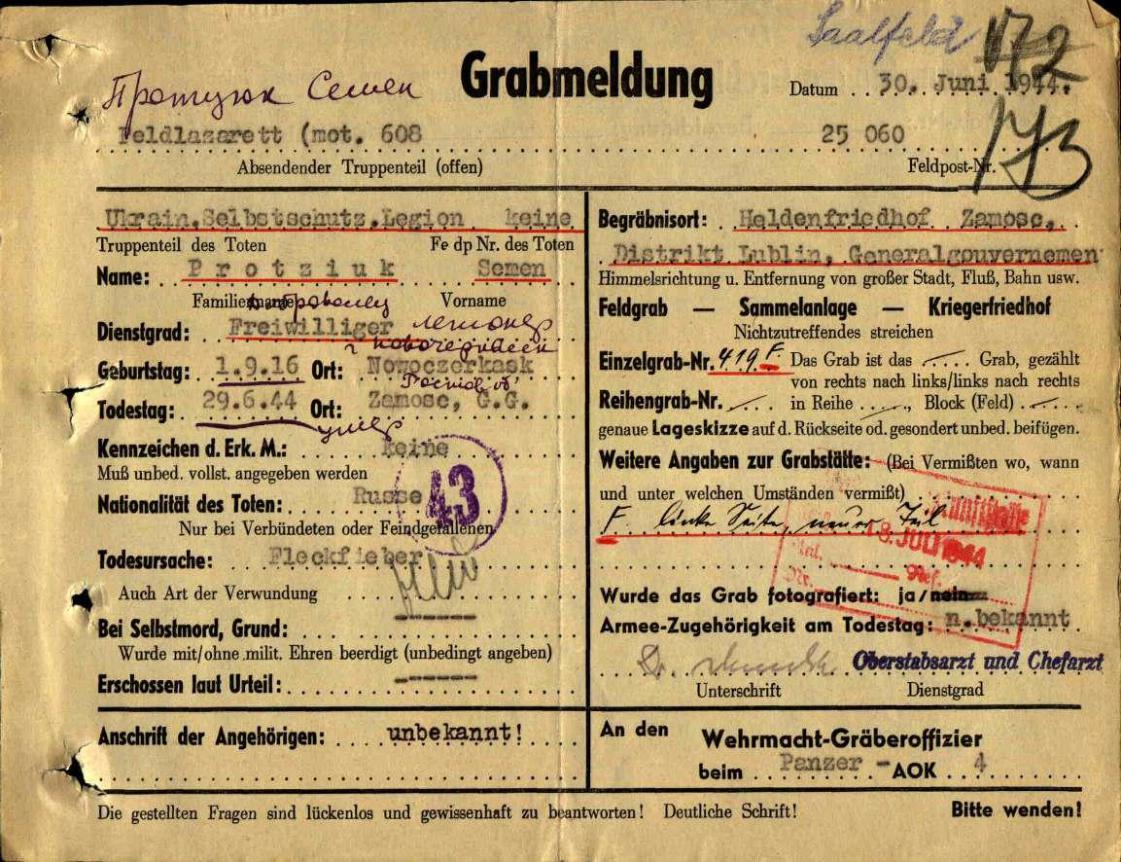 Saalfeld 172
Протузюк Семен
Grabmeldung
Datum . . 30. Juni 1944.
173
Feldlazarett (mot. 608 25 060
Absendender Truppenteil (offen) Feldpost-Nr.
Ukrain.Selbstschutz.Legion keine
Truppenteil des Toten Fe dp Nr. des Toten
Name: Protziuk Semen
Familienname Vorname
доброволец
Dienstgrad: Freiwilliger легионер
г Новочеркасск
Geburtstag: 1.9.16 Ort: Nowoczerkask
Ростов о.
Todestag: 29.6.44 Ort: Zamosc, G.G.
умер
Kennzeichen d. Erk. M.: keine
Muß unbed. vollst. angegeben werden
43
Nationalität des Toten: Russe
Nur bei Verbündeten oder Feindgefallenen
Todesursache: Fleckfieber
Auch Art der Verwundung
Bei Selbstmord, Grund: -------
Wurde mit/ohne milit. Ehren beerdigt (unbedingt angeben)
Erschossen laut Urteil: -------
Anschrift der Angehörigen: unbekannt!
Begräbnisort: Heldenfriedhof Zamosc,
Distrikt Lublin, Generalgouvernemen
Himmelsrichtung u. Entfernung von großer Stadt, Fluß, Bahn usw.
Feldgrab — Sammelanlage — Kriegerfriedhof
Nichtzutreffendes streichen
Einzelgrab-Nr. 419 F. Das Grab ist das Grab, gezählt
von rechts nach links/links nach rechts
Reihengrab-Nr. in Reihe , Block (Feld)
genaue Lageskizze auf d. Rückseite od. gesondert unbed. beifügen.
Weitere Angaben zur Grabstätte: (Bei Vermißten wo, wann
und unter welchen Umständen vermißt)
F. linke Seite, neuer Teil
8. JULI 1944
Wurde das Grab fotografiert: ja/nein
Armee-Zugehörigkeit am Todestag: n.bekannt
Dr. Oberstabsarzt und Chefarzt
Unterschrift Dienstgrad
An den Wehrmacht-Gräberoffizier
beim Panzer - AOK 4
Die gestellten Fragen sind lückenlos und gewissenhaft zu beantworten! Deutliche Schrift! Bitte wenden!